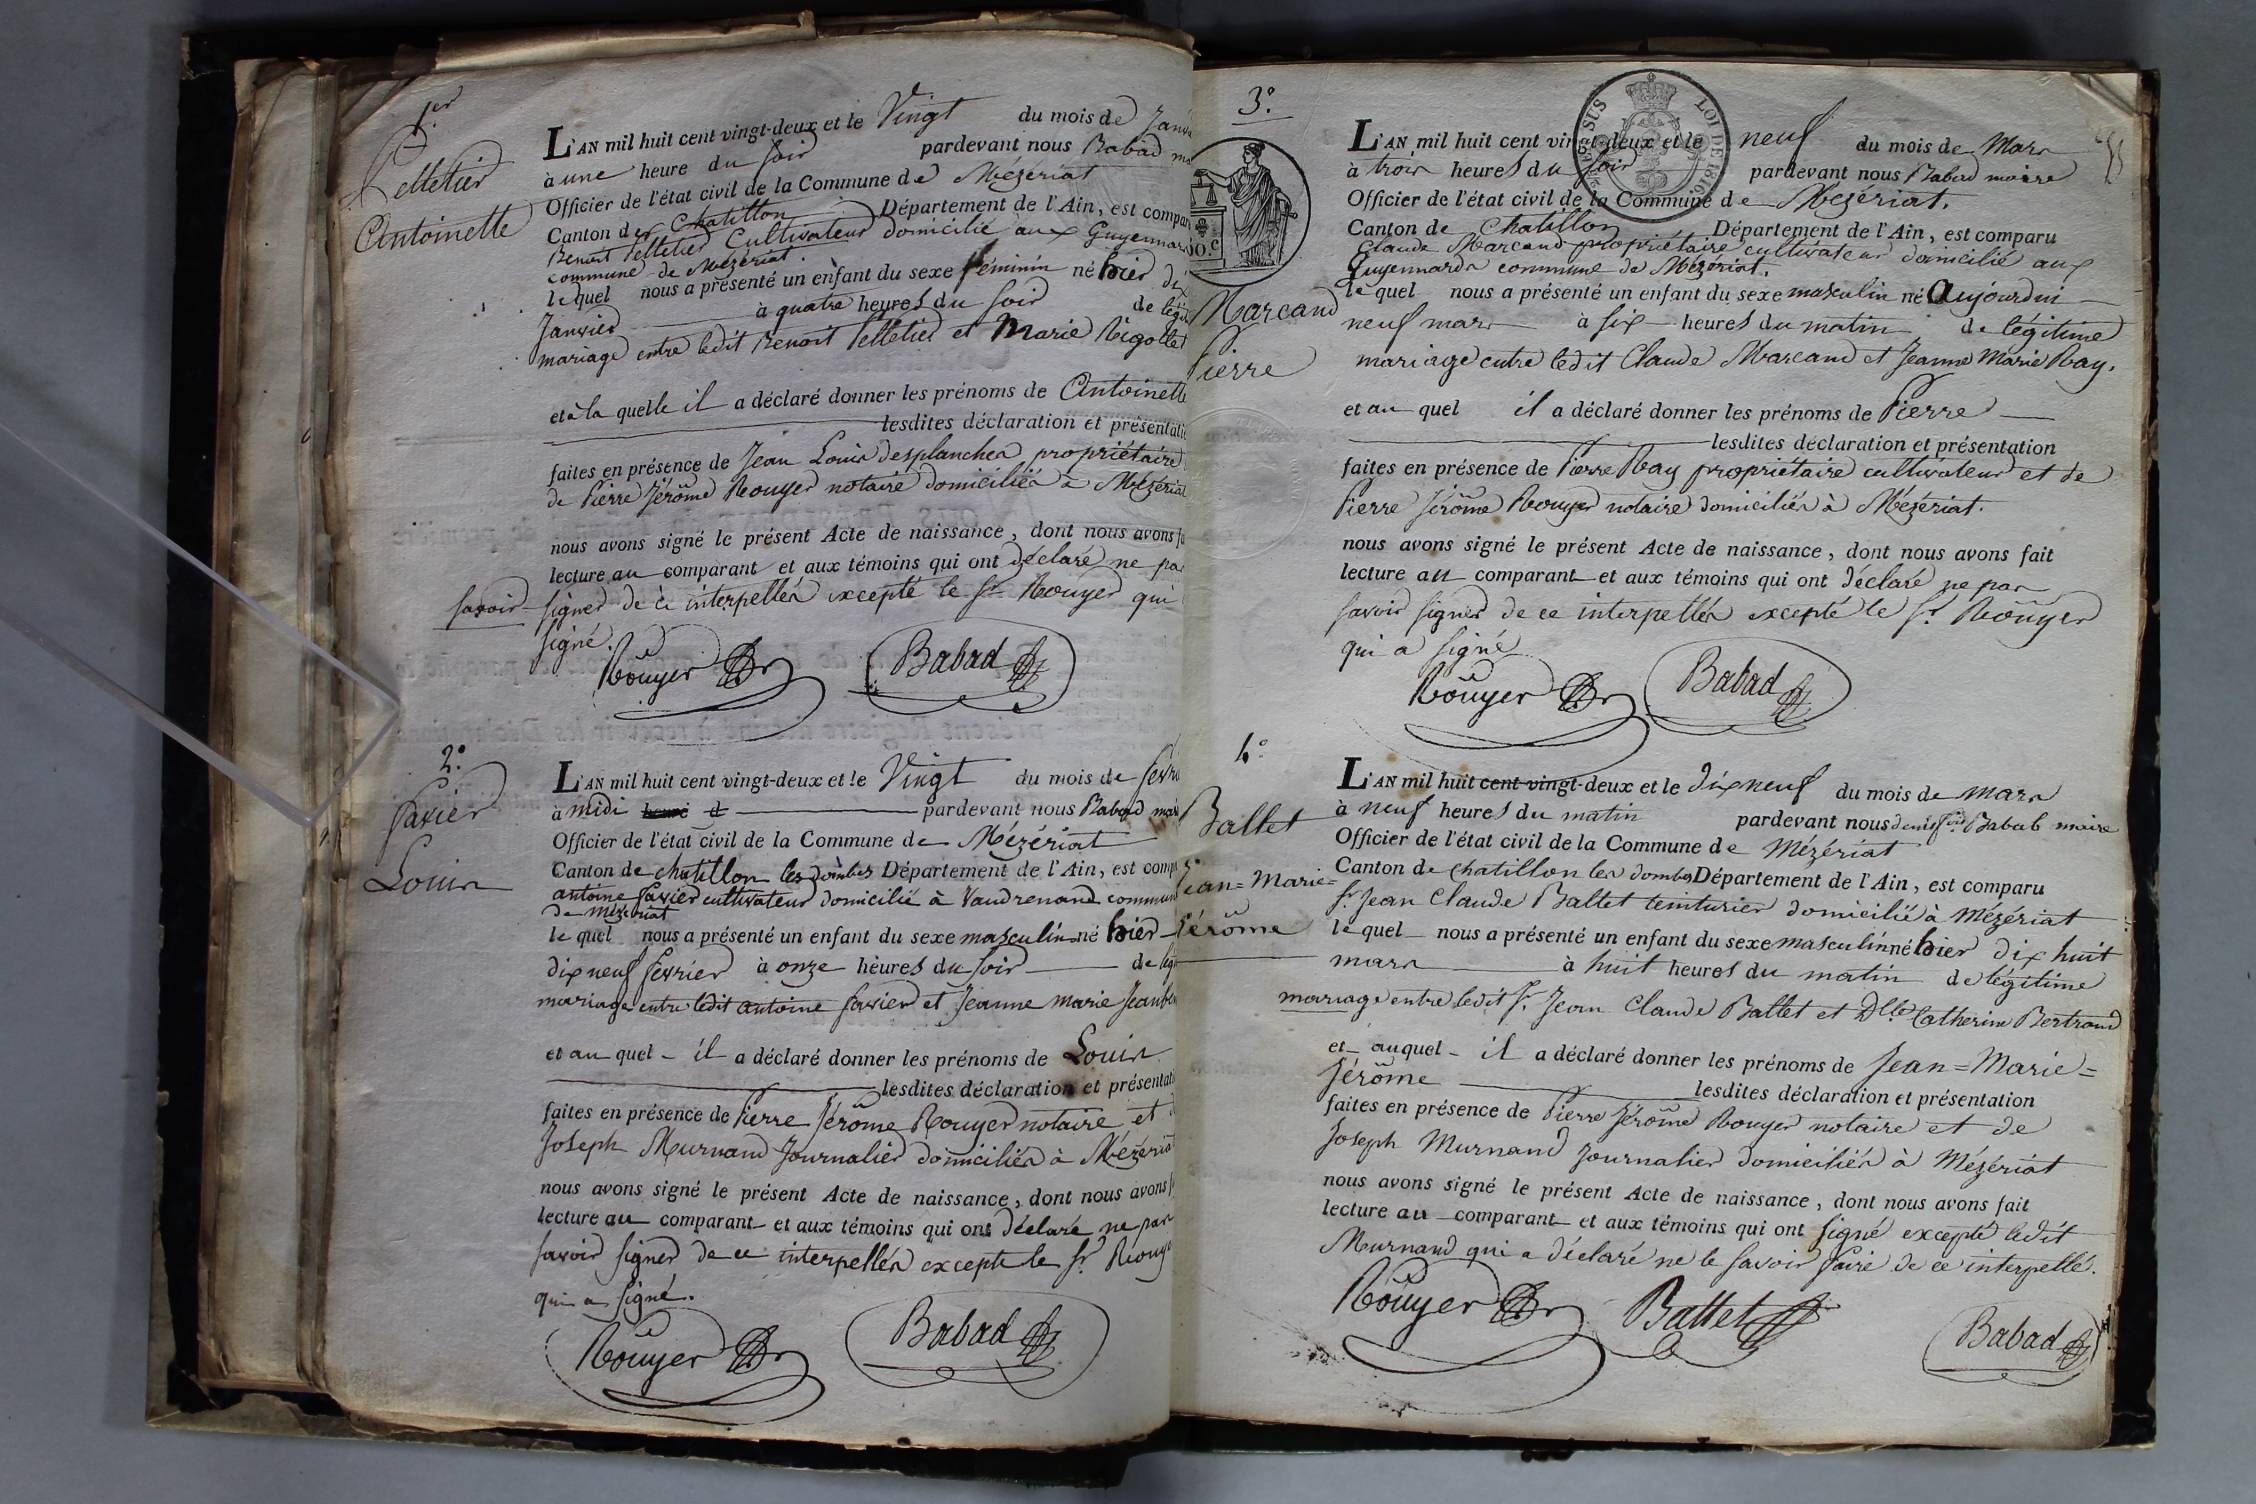 1.er
Pelletier
Antoinette
L'AN mil huit cent vingt-deux et le Vingt du mois de Janv
à une heure du soir pardevant nous Babad ma
Officier de l'état civil de la Commune de Mézériat
Canton de Chatillon Département de l'Ain, est compar
Benoit Pelletier Cultivateur domicilié aux Guyennard
commune de Mézériat.
le quel nous a présenté un enfant du sexe féminin né hier dix
Janvier à quatre heures du soir de légi
mariage entre ledit Benoit Pelletier et Marie Rigollet
et à la quelle il a déclaré donner les prénoms de Antoinette
lesdites déclaration et présentatio
faites en présence de Jean Louis desplanches propriétaire
de Pierre Jérôme Rouyer notaire domiciliés à Mézériat
nous avons signé le présent Acte de naissance, dont nous avons fa
lecture au comparant et aux témoins qui ont déclaré ne pas
savoir signer de ce interpellés excepté le Sr Rouyer qui
signé.
Rouyer Babad
2.o
Favier
Louis
L'AN mil huit cent vingt-deux et le Vingt du mois de févri
à midi heure d pardevant nous Babad mai
Officier de l'état civil de la Commune de Mézériat
Canton de chatillon les dombes Département de l'Ain, est comp
antoine favier cultivateur domicilié à Vaudrenand commun
de Mézériat
le quel nous a présenté un enfant du sexe masculin né hier
dix neuf fevrier à onze heures du soir de légi
mariage entre ledit antoine favier et Jeanne marie
et au quel il a déclaré donner les prénoms de Louis
lesdites déclaration et présentati
faites en présence de Pierre Jérôme Rouyer notaire et d
Joseph Murnand Journalier domiciliés à Mézériat
nous avons signé le présent Acte de naissance, dont nous avons f
lecture au comparant et aux témoins qui ont déclaré ne pas
savoir signer de ce interpellés excepté le Sr. Rouye
qui a signé.
Rouyer Babad
3.o
SUS LOI DE 1816
0.c
Marcand
Pierre
L'AN mil huit cent vingt-deux et le neuf du mois de Mars
à trois heures du soir pardevant nous Babad maire
Officier de l'état civil de la Commune de Mézériat.
Canton de Chatillon Département de l'Ain, est comparu
Claude Marcand propriétaire cultivateur domicilié aux
Guyennards commune de Mézériat.
le quel nous a présenté un enfant du sexe masculin né aujourdui
neuf mars à six heures du matin de légitime
mariage entre ledit Claude Marcand et Jeanne Marie Ray.
et au quel il a déclaré donner les prénoms de Pierre
lesdites déclaration et présentation
faites en présence de Pierre Ray propriétaire cultivateur et de
Pierre Jérôme Rouyer notaire domiciliés à Mézériat.
nous avons signé le présent Acte de naissance, dont nous avons fait
lecture au comparant et aux témoins qui ont déclaré ne pas
savoir signer de ce interpellés excepté le Sr. Rouyer
qui a signé
Rouyer Babad
4.o
Ballet
Jean=Marie=
Jérôme
L'AN mil huit cent vingt-deux et le dix neuf du mois de mars
à neuf heures du matin pardevant nous Babab maire
Officier de l'état civil de la Commune de Mézériat
Canton de chatillon les dombes Département de l'Ain, est comparu
Sr. Jean Claude Ballet teinturier domicilié à Mézériat
le quel nous a présenté un enfant du sexe masculin né hier dix huit
mars à huit heures du matin de légitime
mariage entre ledit Sr. Jean Claude Ballet et Dlle Catherine Bertrand
et auquel il a déclaré donner les prénoms de Jean=Marie=
Jérôme lesdites déclaration et présentation
faites en présence de Pierre Jérôme Rouyer notaire et de
Joseph Murnand Journalier domiciliés à Mézériat
nous avons signé le présent Acte de naissance, dont nous avons fait
lecture au comparant et aux témoins qui ont signé excepté ledit
Murnand qui a déclaré ne le savoir faire de ce interpellé.
Rouyer Ballet Babad